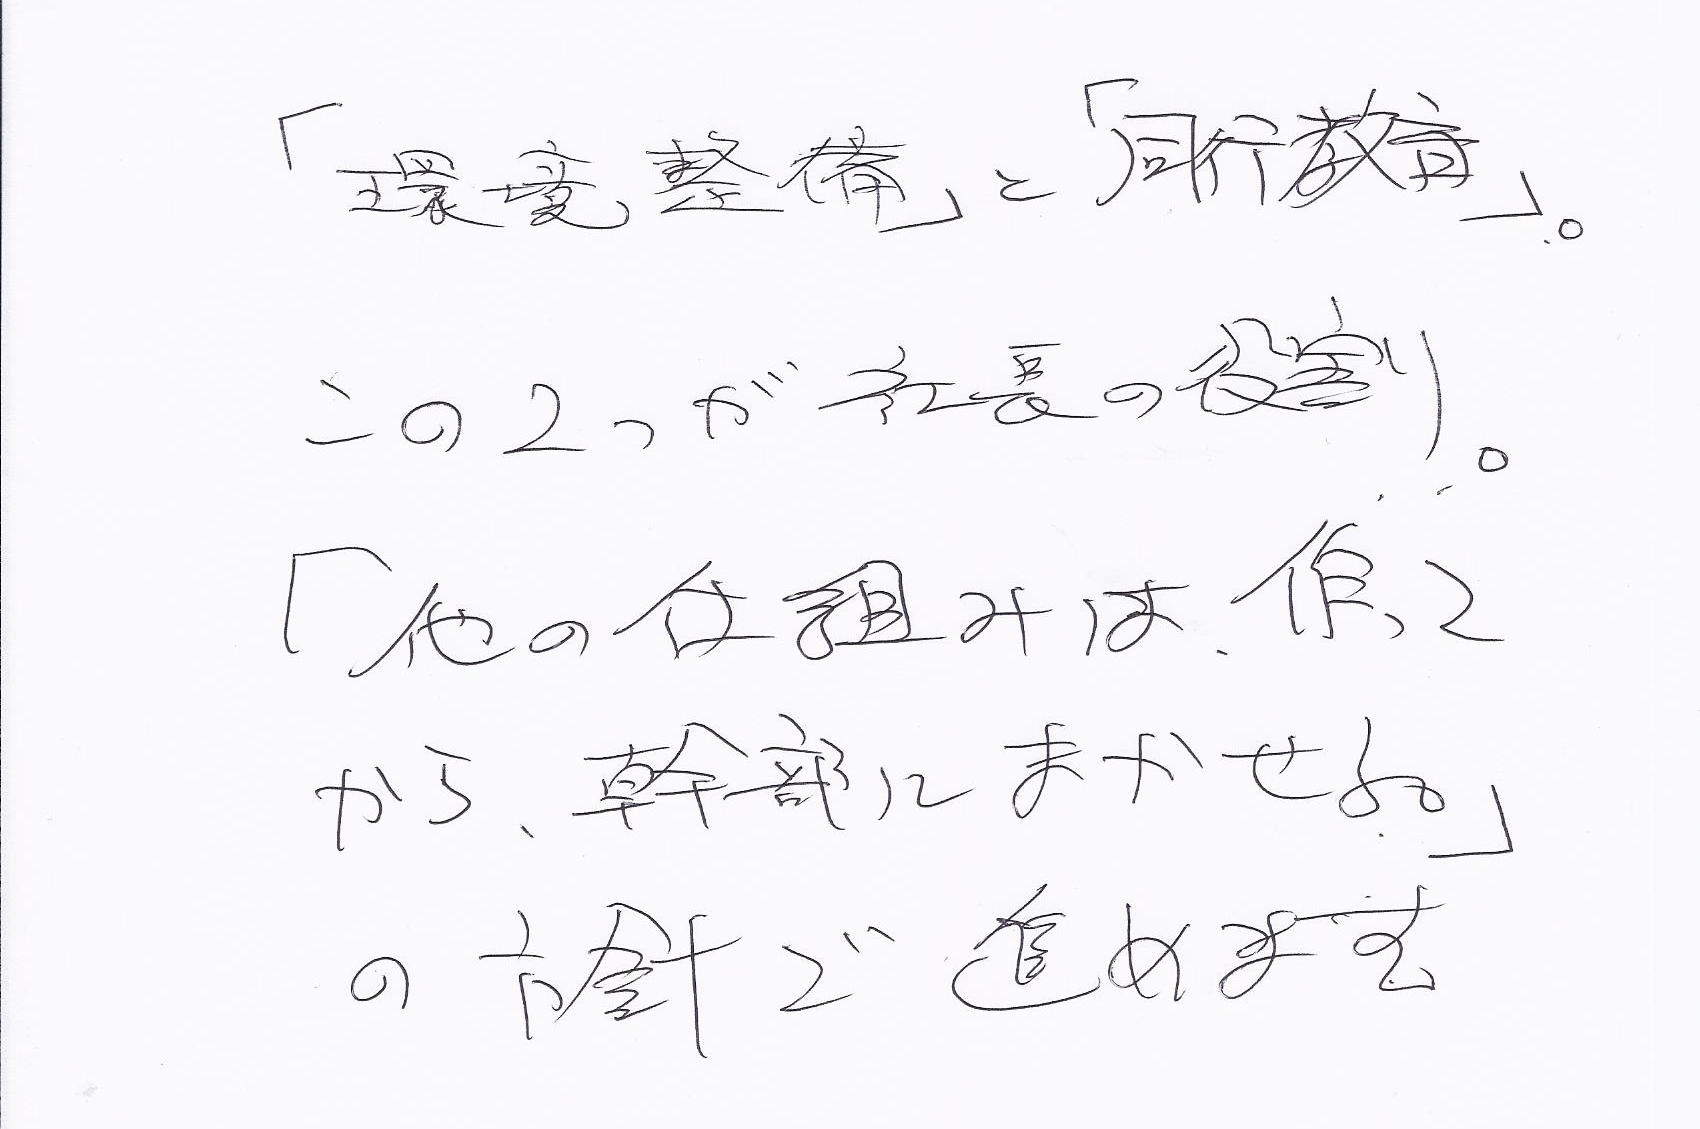 「環境整備」と「同行教育」。
この2つが社長の役割。
「他の仕組みは、作って
から、幹部にまかせる。」
の方針で進めます